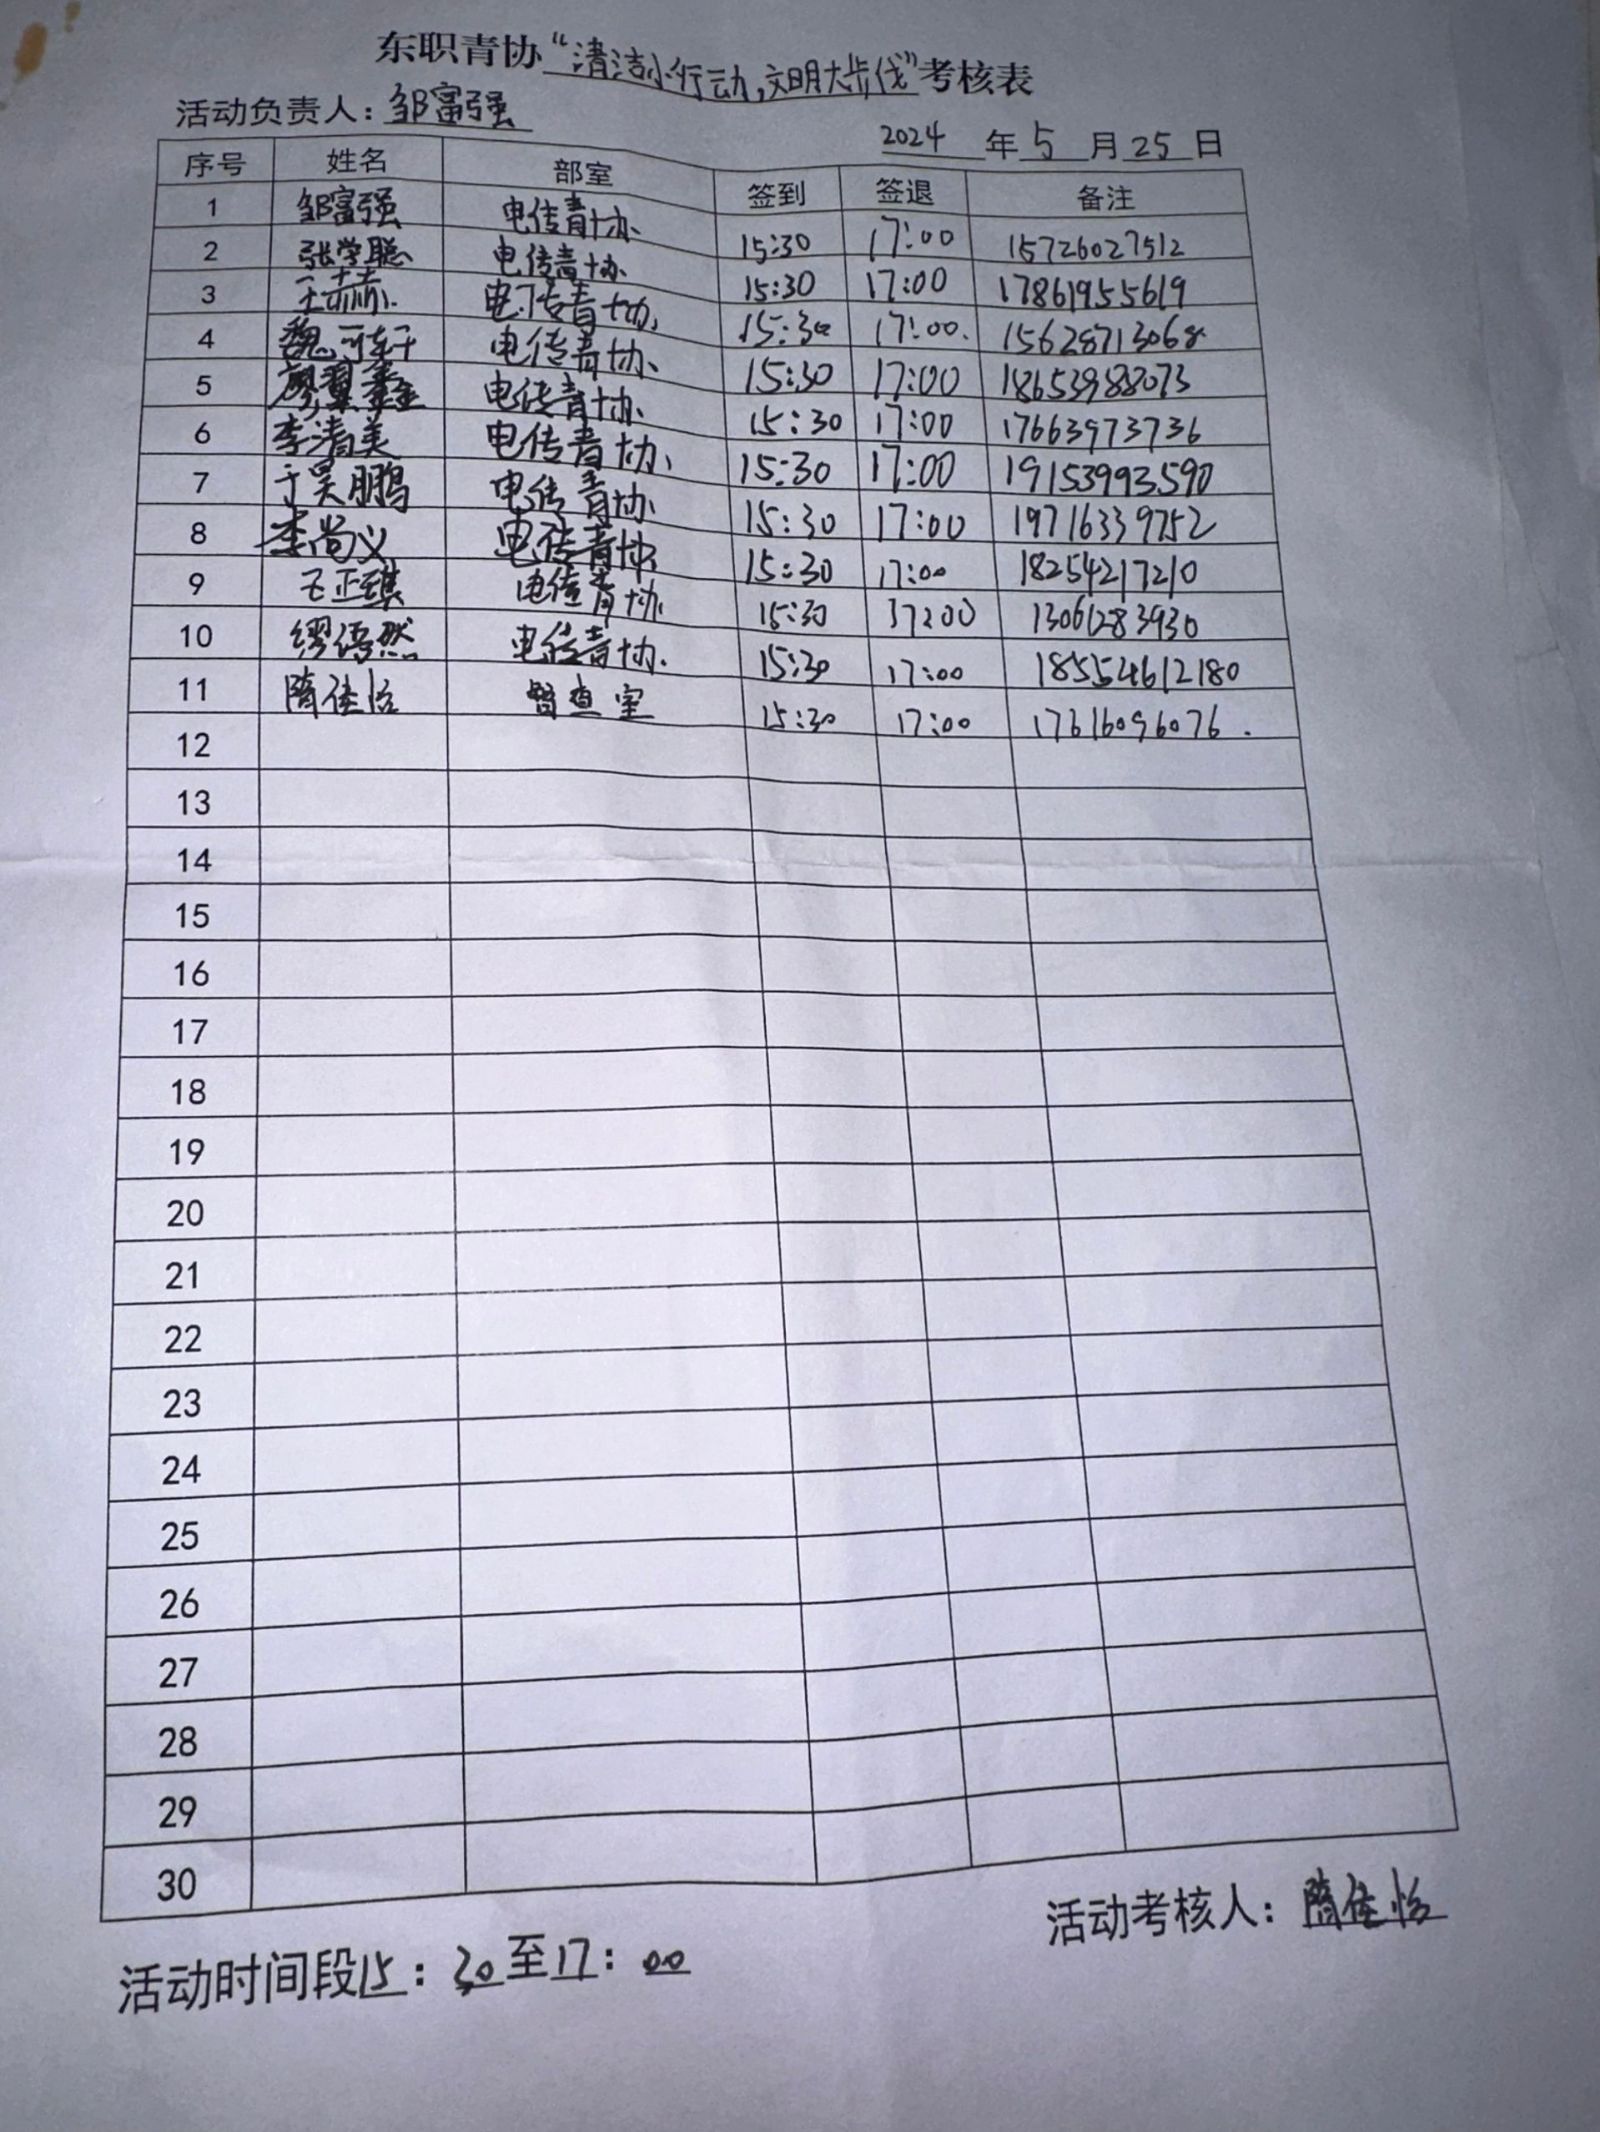 东职青协“清洁小行动,文明大步伐”考核表
活动负责人：邹富强
2024 年 5 月 25 日
序号 姓名 部室 签到 签退 备注
1 邹富强 电传青协 15:30 17:00 15726027512
2 张学聪 电传青协 15:30 17:00 17861955619
3 王赫 电传青协 15:30 17:00 15628713068
4 魏可轩 电传青协 15:30 17:00 18653988073
5 电传青协 15:30 17:00 17663973736
6 李清美 电传青协 15:30 17:00 19153993590
7 于昊鹏 电传青协 15:30 17:00 19716339752
8 李尚义 电传青协 15:30 17:00 18254217210
9 王正琪 电传青协 15:30 17:00 13061283930
10 缪语然 电传青协 15:30 17:00 18554612180
11 隋佳怡 督查室 15:30 17:00 17616096076
12
13
14
15
16
17
18
19
20
21
22
23
24
25
26
27
28
29
30
活动考核人：隋佳怡
活动时间段15：30至17：00